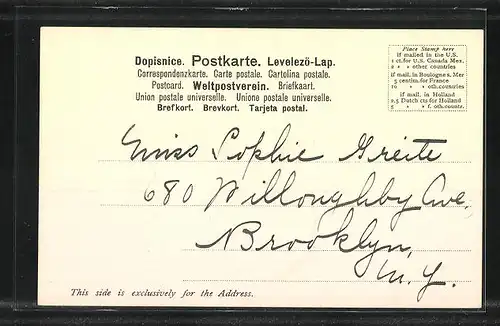 Dopisnice. Postkarte. Levelezö-Lap.
Correspondenzkarte. Carte postale. Cartolina postale.
Postcard. Weltpostverein. Briefkaart.
Union postale universelle. Unione postale universelle.
Brefkort. Brevkort. Tarjeta postal.
Place Stamp here
if mailed in the U.S.
1 ct. for U.S. Canada Mex.
2 » » other countries
if mail. in Boulogne s. Mer
5 centim. for France
10 » » oth. countries
if mail. in Holland
2.5 Dutch cts for Holland
5 » » f. oth. countr.
Miss Sophie Greite
680 Willoughby Ave.
Brooklyn,
N. Y.
This side is exclusively for the Address.